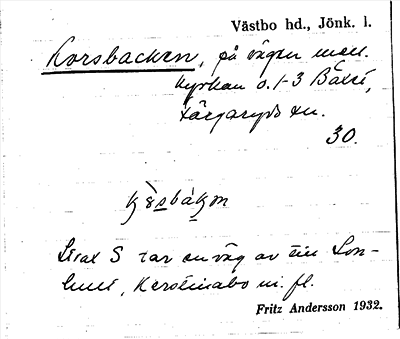 Västbo hd., Jönk. l.
Korsbacken, på vägen mell.
kyrkan o. 1-3 Båxtö,
Färgaryds sn.
30.
Strax S tar en väg av till Lon-
hult, Karolinabo m. fl.
Fritz Andersson 1932.